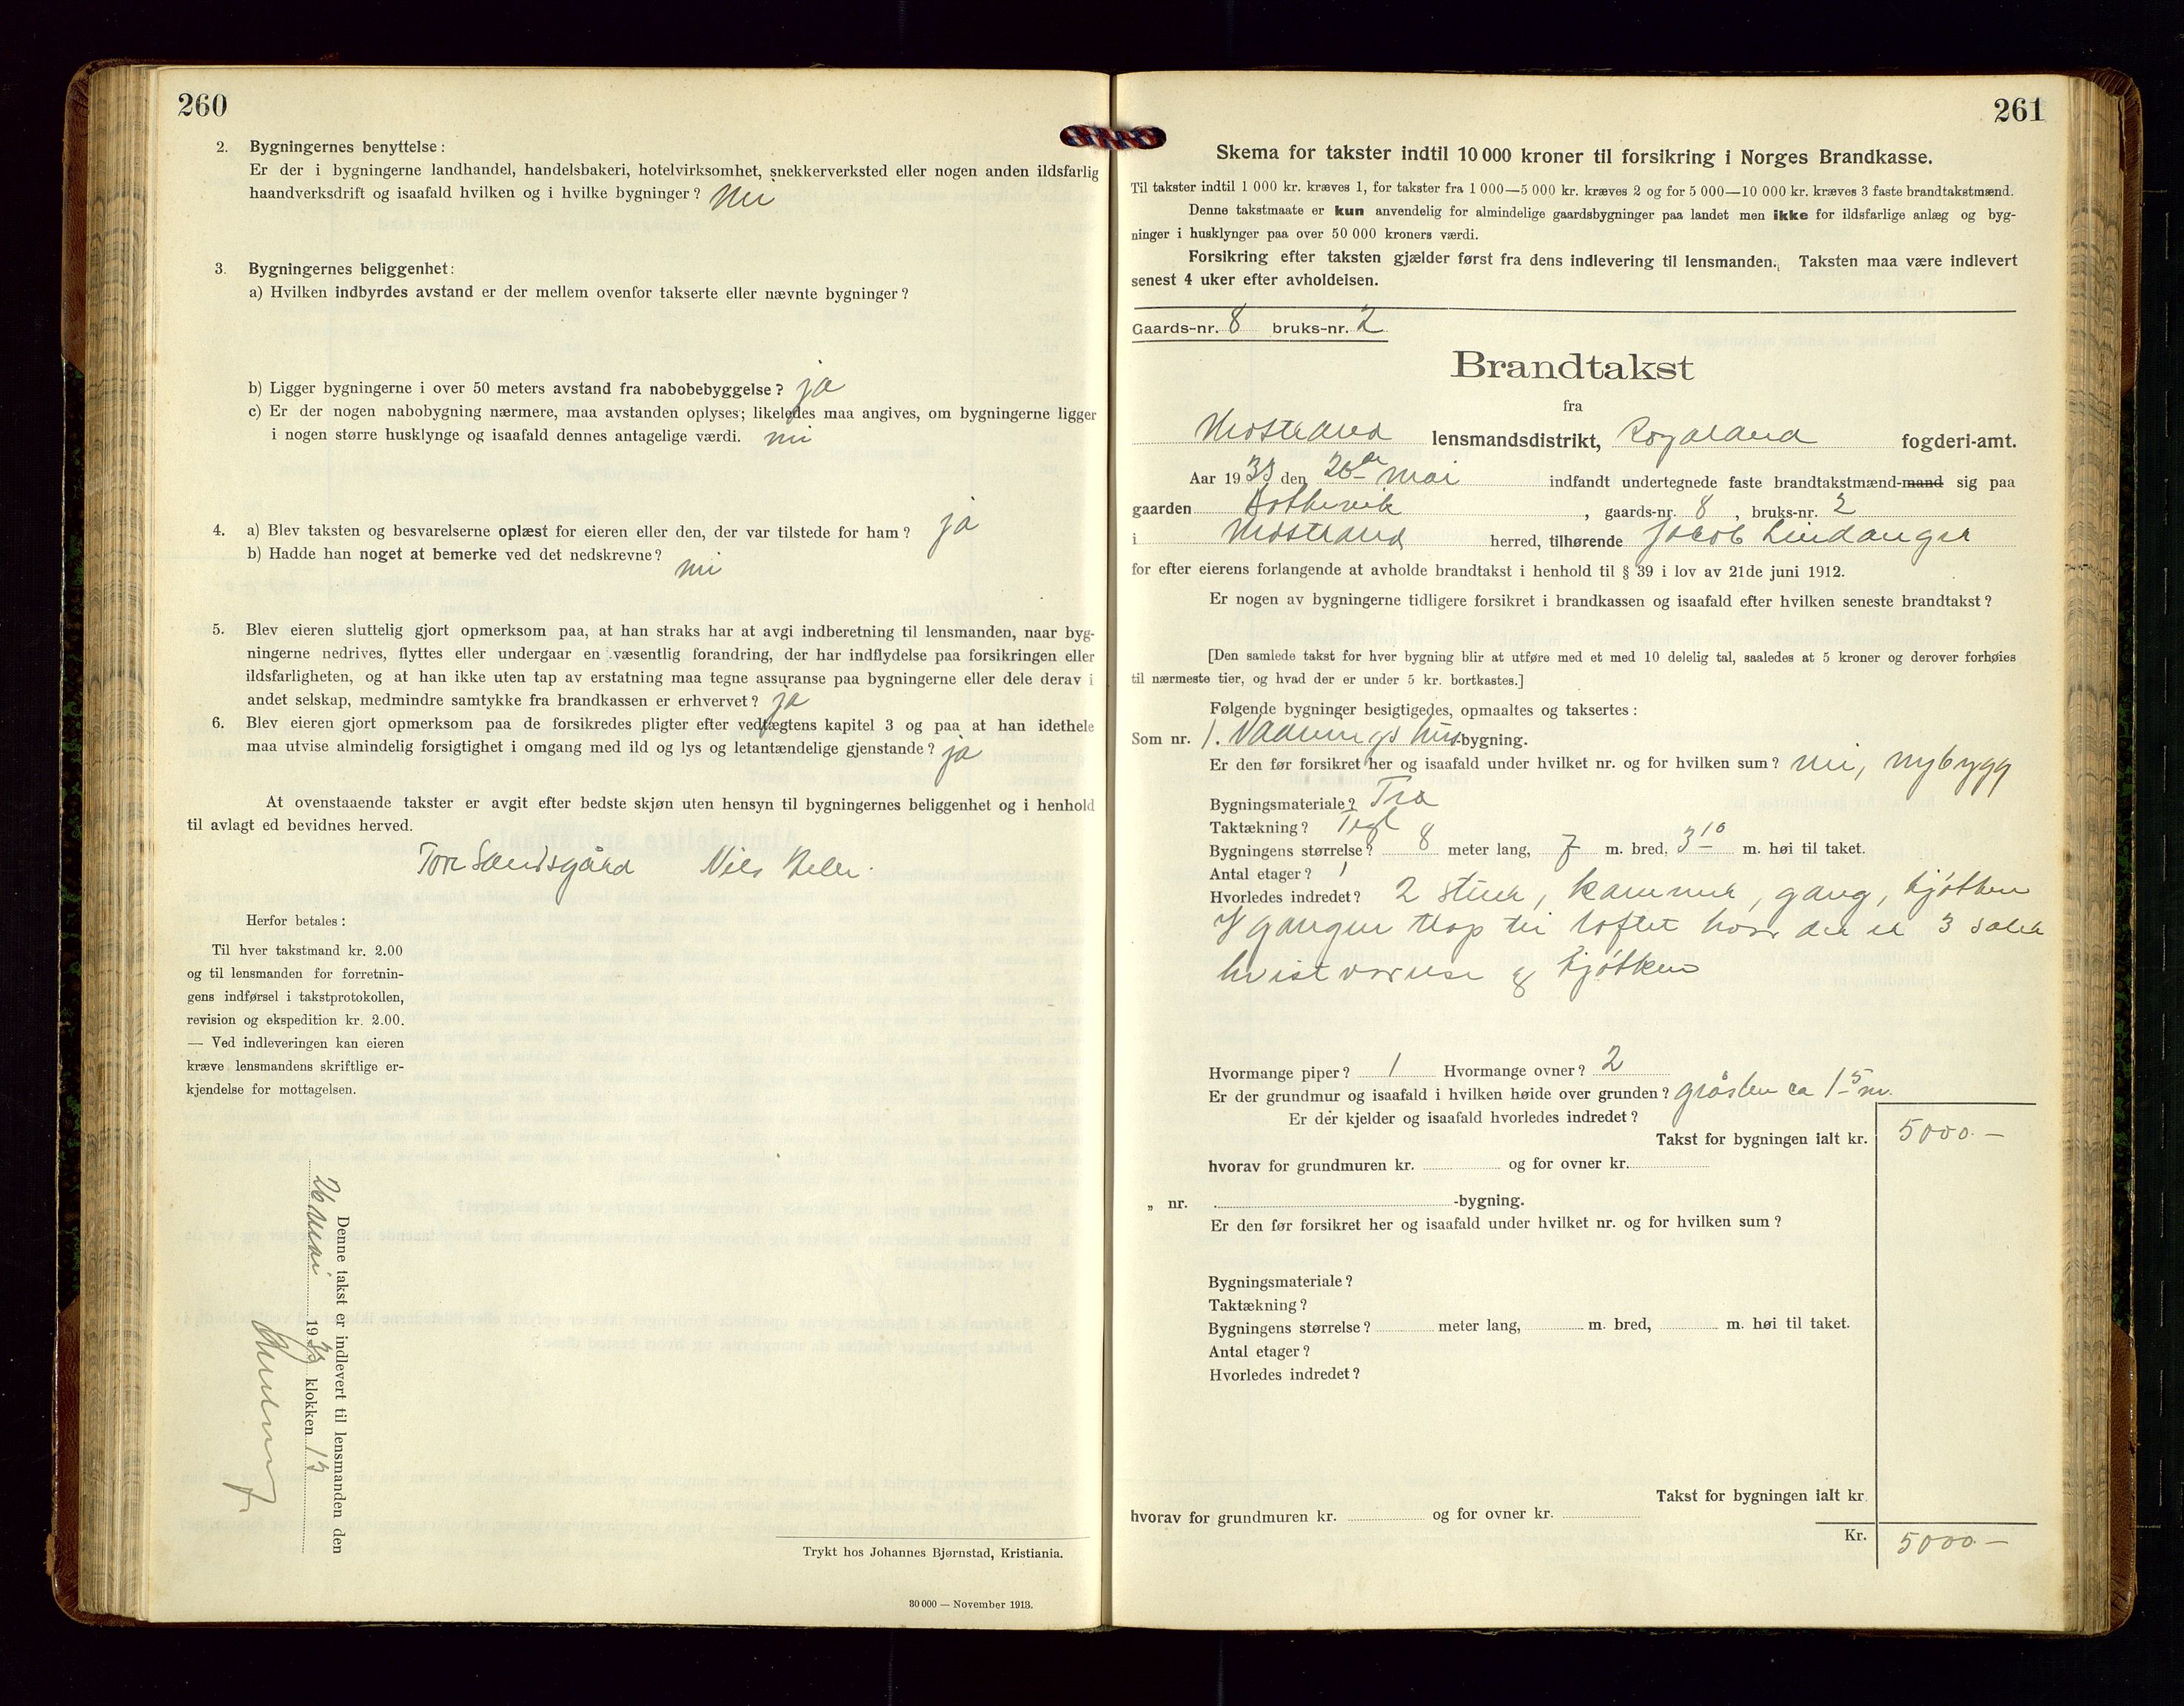 260
2. Bygningernes benyttelse:
Er der i bygningerne landhandel, handelsbakeri, hotelvirksomhet, snekkerverksted eller nogen anden ildsfarlig
haandverksdrift og isaafald hvilken og i hvilke bygninger? nei
3. Bygningernes beliggenhet:
a) Hvilken indbyrdes avstand er der mellem ovenfor takserte eller nævnte bygninger?
b) Ligger bygningerne i over 50 meters avstand fra nabobebyggelse? ja
c) Er der nogen nabobygning nærmere, maa avstanden oplyses; likeledes maa angives, om bygningerne ligger
i nogen større husklynge og isaafald dennes antagelige værdi. nei
4. a) Blev taksten og besvarelserne oplæst for eieren eller den, der var tilstede for ham? ja
b) Hadde han noget at bemerke ved det nedskrevne? nei
5. Blev eieren sluttelig gjort opmerksom paa, at han straks har at avgi indberetning til lensmanden, naar byg-
ningerne nedrives, flyttes eller undergaar en væsentlig forandring, der har indflydelse paa forsikringen eller
ildsfarligheten, og at han ikke uten tap av erstatning maa tegne assuranse paa bygningerne eller dele derav i
andet selskap, medmindre samtykke fra brandkassen er erhvervet? ja
6. Blev eieren gjort opmerksom paa de forsikredes pligter efter vedtægtens kapitel 3 og paa at han idethele
maa utvise almindelig forsigtighet i omgang med ild og lys og letantændelige gjenstande? ja
At ovenstaaende takster er avgit efter bedste skjøn uten hensyn til bygningernes beliggenhet og i henhold
til avlagt ed bevidnes herved.
Tore Sandsgård Nils
Herfor betales:
Til hver takstmand kr. 2.00
og til lensmanden for forretnin-
gens indførsel i takstprotokollen,
revision og ekspedition kr. 2.00.
— Ved indleveringen kan eieren
kræve lensmandens skriftlige er-
kjendelse for mottagelsen.
Denne takst er indlevert til lensmanden den
26 mai 1933 klokken 13
Trykt hos Johannes Bjørnstad, Kristiania.
30 000 — November 1913.
261
Skema for takster indtil 10 000 kroner til forsikring i Norges Brandkasse.
Til takster indtil 1 000 kr. kræves 1, for takster fra 1 000—5 000 kr. kræves 2 og for 5 000—10 000 kr. kræves 3 faste brandtakstmænd.
Denne takstmaate er kun anvendelig for almindelige gaardsbygninger paa landet men ikke for ildsfarlige anlæg og byg-
ninger i husklynger paa over 50 000 kroners værdi.
Forsikring efter taksten gjælder først fra dens indlevering til lensmanden. Taksten maa være indlevert
senest 4 uker efter avholdelsen.
Gaards-nr. 8 bruks-nr. 2
Brandtakst
fra
Nedstrand lensmandsdistrikt, Rogaland fogderi-amt.
Aar 1933 den mai indfandt undertegnede faste brandtakstmænd-mand sig paa
gaarden , gaards-nr. 8 , bruks-nr. 2
i Nedstrand herred, tilhørende Jacob Lindanger
for efter eierens forlangende at avholde brandtakst i henhold til § 39 i lov av 21de juni 1912.
Er nogen av bygningerne tidligere forsikret i brandkassen og isaafald efter hvilken seneste brandtakst?
[Den samlede takst for hver bygning blir at utføre med et med 10 delelig tal, saaledes at 5 kroner og derover forhøies
til nærmeste tier, og hvad der er under 5 kr. bortkastes.]
Følgende bygninger besigtigedes, opmaaltes og taksertes:
Som nr. 1. Vaaningshus-bygning.
Er den før forsikret her og isaafald under hvilket nr. og for hvilken sum? nei, nybygg
Bygningsmateriale? Træ
Taktækning? Tegl
Bygningens størrelse? 8 meter lang, 7 m. bred, 3 10 m. høi til taket.
Antal etager? 1
Hvorledes indredet? 2 stuer, kammer, gang, kjøkken
I gangen trap til loftet hvor der er 3 saler
kvistværelse og kjøkken
Hvormange piper? 1 Hvormange ovner? 2
Er der grundmur og isaafald i hvilken høide over grunden? gråsten ca 1 5 m.
Er der kjelder og isaafald hvorledes indredet?
Takst for bygningen ialt kr. 5000.—
hvorav for grundmuren kr. og for ovner kr.
„ nr. -bygning.
Er den før forsikret her og isaafald under hvilket nr. og for hvilken sum?
Bygningsmateriale?
Taktækning?
Bygningens størrelse? meter lang, m. bred, m. høi til taket.
Antal etager?
Hvorledes indredet?
Takst for bygningen ialt kr.
hvorav for grundmuren kr. og for ovner kr.
Kr. 5000.—